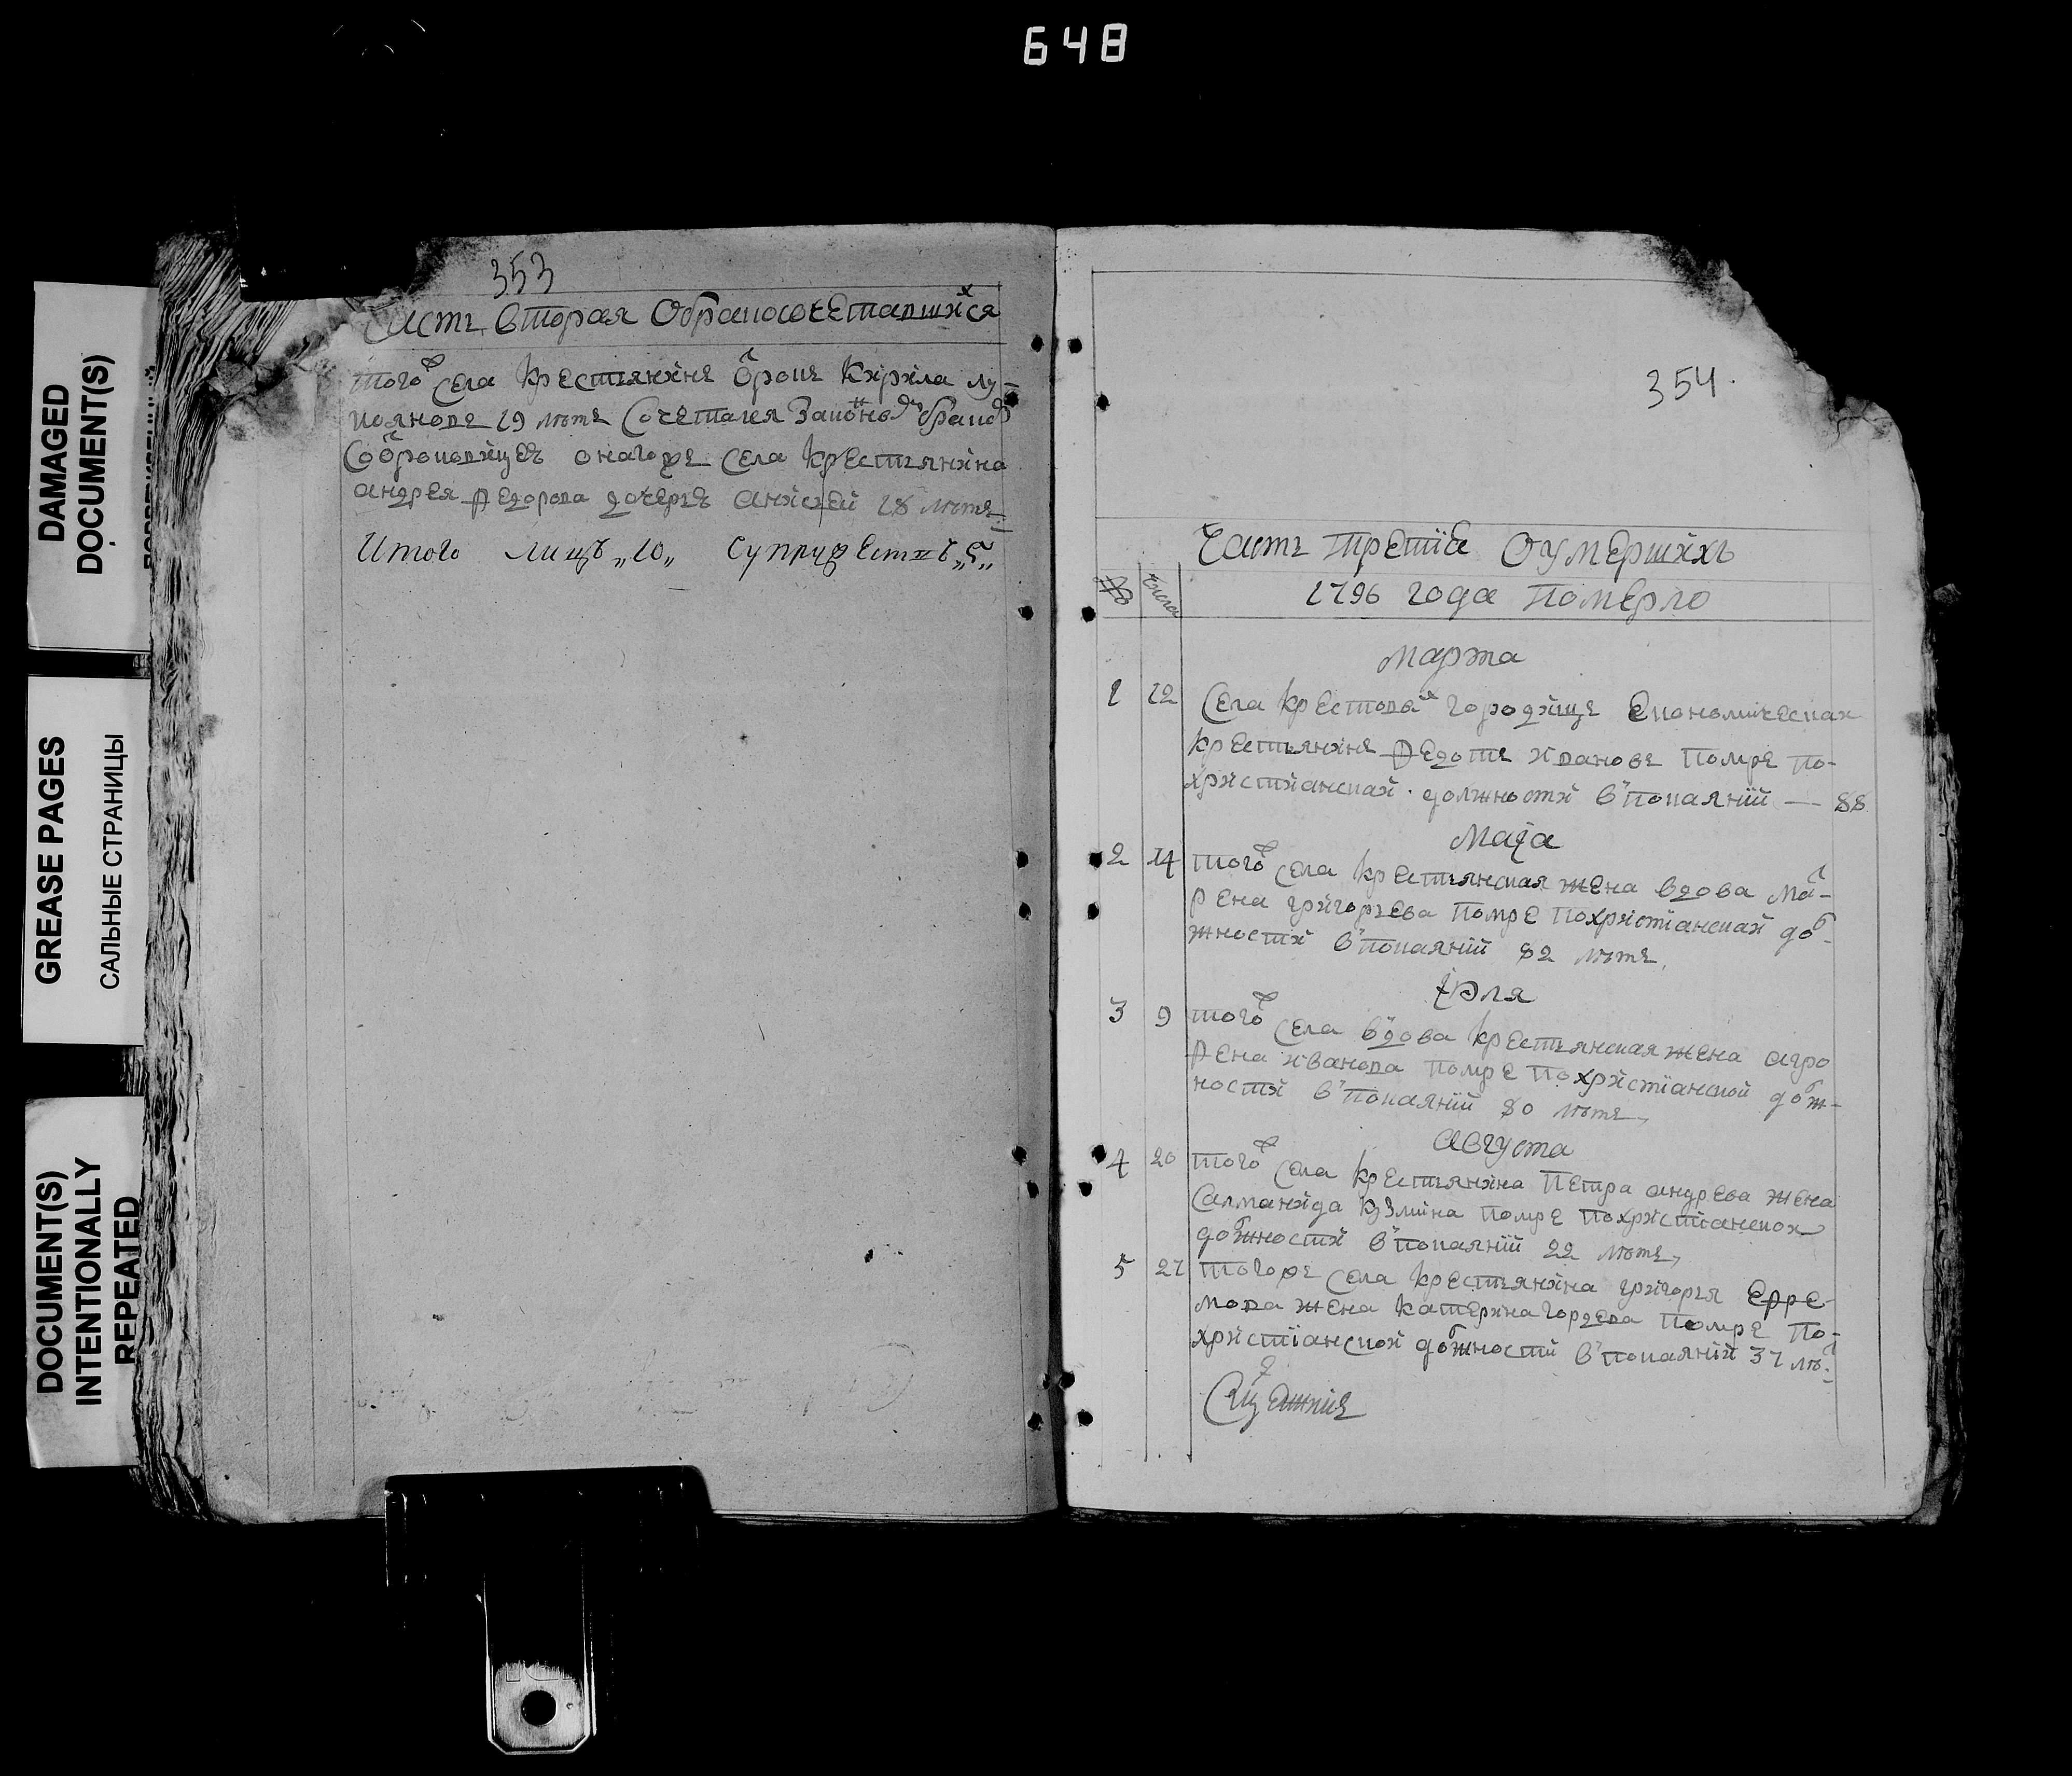 648
DAMAGED
DOCUMENT(S)
GREASE PAGES
САЛЬНЫЕ СТРАНИЦЫ
DOCUMENT(S)
INTENTIONALLY
REPEATED
353
Часть вторая О бракосочетавшихся
того ж села крестьянинъ отрокъ Кирила Лу-
кояновъ 19 летъ сочетался законнымъ бракомъ
со отроковицею онагоже села крестьянина
Андрея Федорова дочерью Анисьей 18 летъ
Итого лицъ „10„ супружествъ „5„
354
Часть третия О умершихъ
№ числа
1796 года Померло
Марта
1 12 Села Крестовыя Городищъ економическая
крестьянинъ Федотъ Ивановъ помре по-
христианской должности в покаянии — 88
Маїя
2 14 того ж села крестьянская жена вдова Ма-
рена Григорьева помре по христианской дол-
жности в покаянии 82 летъ
Июля
3 9 того ж села вдова крестьянская жена Агро
фена Иванова помре по христианской долж-
ности в покаянии 80 летъ
Августа
4 20 того ж села крестьянина Петра Андрева жена
Саламанида Кузмина помре по христианской
должности в покаянии 22 летъ
5 27 тогоже села крестьянина Григорья Ефре-
мова жена Катерина Гордева помре по-
христианской должности в покаянии 37 ле